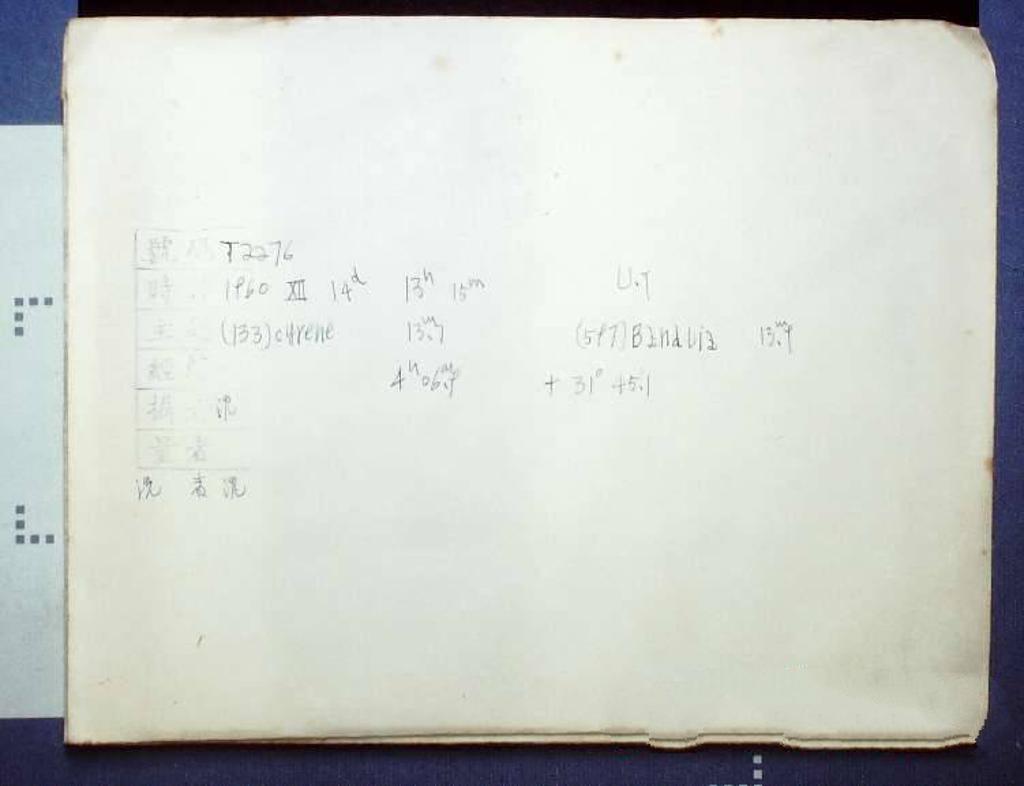 號碼 T2276
時 1960 XII 14d 13h 15m U.T
(133)cyrene 13m.7 (597)Bandusia 13m.9
4h 06m.9 + 31° 45.1
攝 沈
量者
洗者 沈